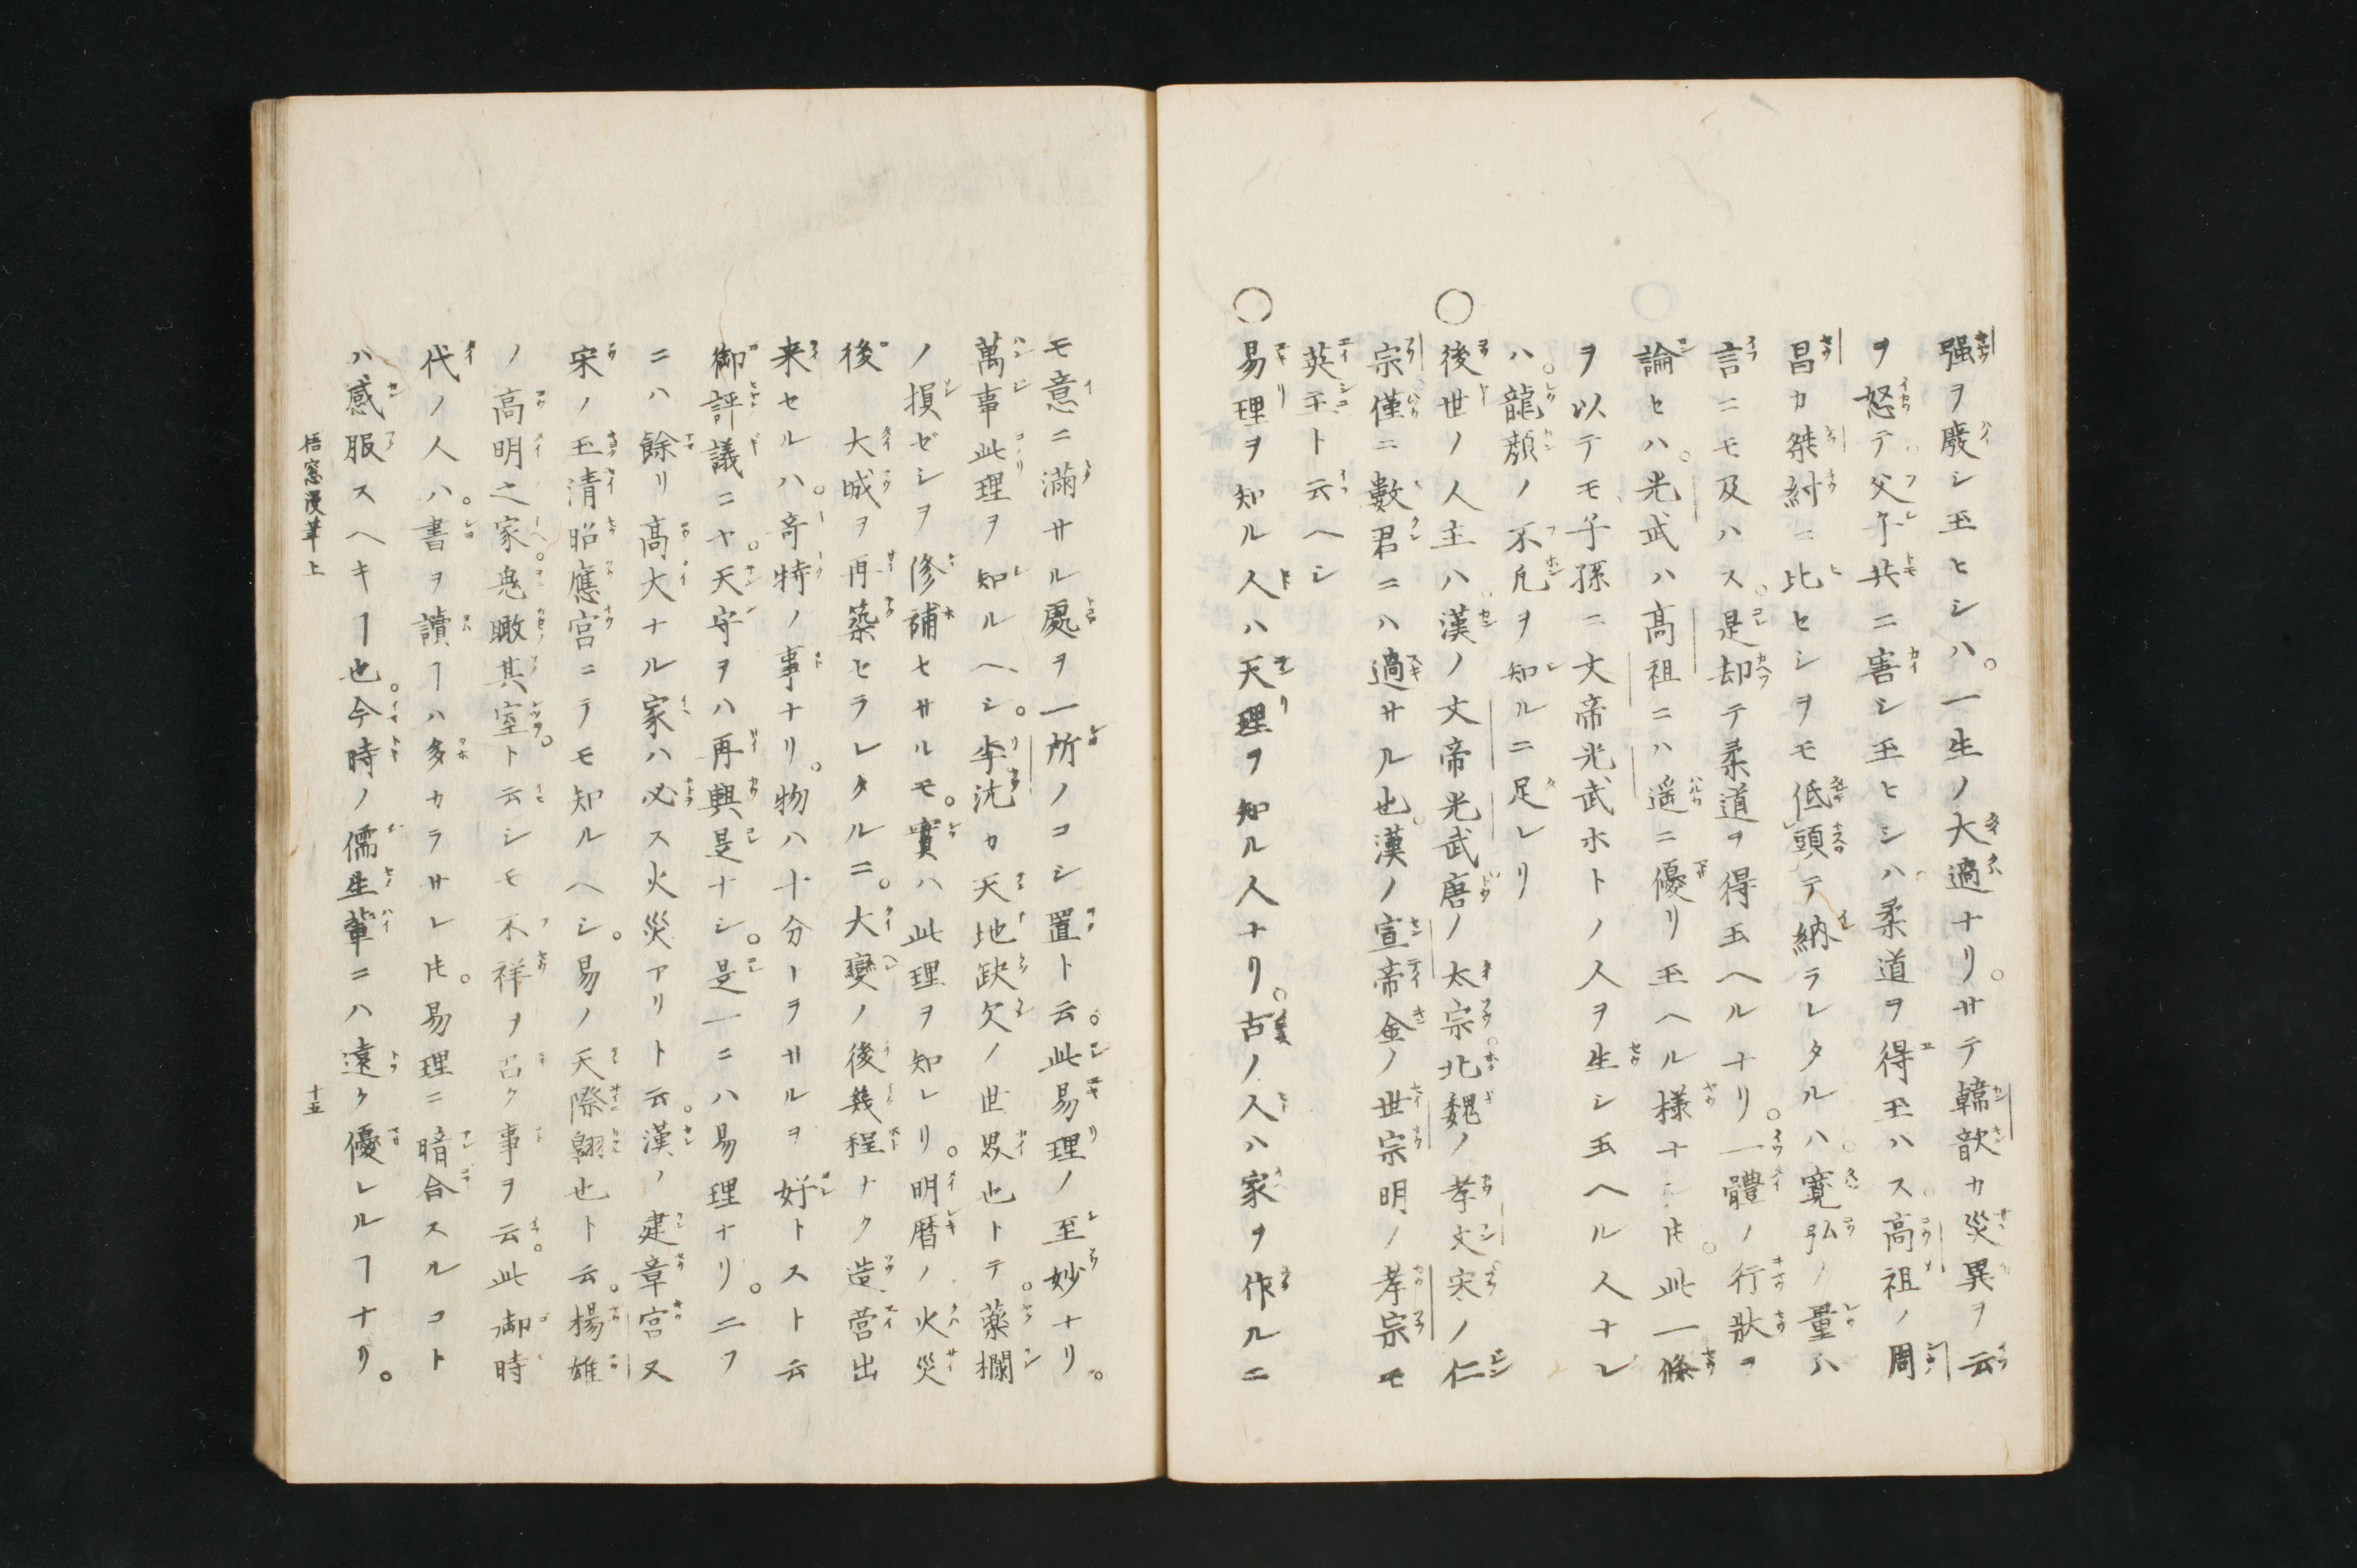 强ヲ廢シ玉ヒシハ。一生ノ大過ナリ。サテ韓歆カ災異ヲ云
ヲ怒テ。父子共ニ害シ玉ヒシハ。柔道ヲ得玉ハス。高祖ノ周
昌カ桀紂ニ比セシヲモ低頭テ納ラレタルハ。寛弘ノ量ハ
言ニモ及ハス。是却テ柔道ヲ得玉ヘルナリ。一體ノ行狀ヲ
論セハ。光武ハ高祖ニハ遥ニ優リ玉ヘル様ナレ𪜈。此一條
ヲ以テモ子孫ニ文帝光武ホトノ人ヲ生シ玉ヘル人ナレ
ハ。龍顔ノ不凡ヲ知ルニ足レリ
○後世ノ人主ハ。漢ノ文帝光武唐ノ太宗。北魏ノ孝文宋ノ仁
宗。僅ニ數君ニハ過サル也。漢ノ宣帝金ノ世宗明ノ孝宗モ
英主ト云ヘシ
○易理ヲ知ル人ハ天理ヲ知ル人ナリ。古ノ人ハ家ヲ作ルニ
モ意ニ滿サル處ヲ一所ノコシ置ト云。此易理ノ至妙ナリ。
萬事此理ヲ知ルヘシ。李沆カ天地缺欠ノ世界也トテ。藥欄
ノ損ゼシヲ修補セサルモ。實ハ此理ヲ知レリ。明暦ノ火災
後 大城ヲ再築セラレタルニ。大變ノ後幾程ナク造営出
来セルハ。奇特ノ事ナリ。物ハ十分ーヲサルヲ好トスト云
御評議ニヤ。天守ヲハ再興是ナシ。是一ニハ易理ナリ。二ツ
ニハ餘リ高大ナル家ハ必ス火災アリト云。漢ノ建章宮又
宋ノ玉清昭應宮ニテモ知ルヘシ。易ノ天際翔也ト云。楊雄
ノ高明之家。鬼瞰其室。ト云シモ不祥ヲ召ク事ヲ云。此御時
代ノ人ハ。書ヲ讀ヿハ多カラサレ𪜈。易理ニ暗合スルコト
ハ感服スヘキヿ也。今時ノ儒生輩ニハ遠ク優レルヿナリ。
梧窓漫筆上 十五